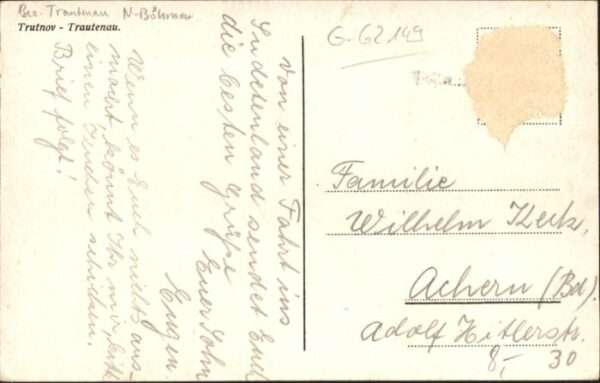 Bez. Trautenau N-Böhmen
Trutnov - Trautenau.
G-62149
Von einer Fahrt ins
Sudetenland sendet Euch
die besten Grüße
Euer Sohn
Eugen
Wenn es Euch nichts aus-
macht, könnt Ihr mir, bitte
einen senden.
Brief folgt!
Familie
Wilhelm Keck,
Achern (Bd).
Adolf Hitlerstr.
8,- 30